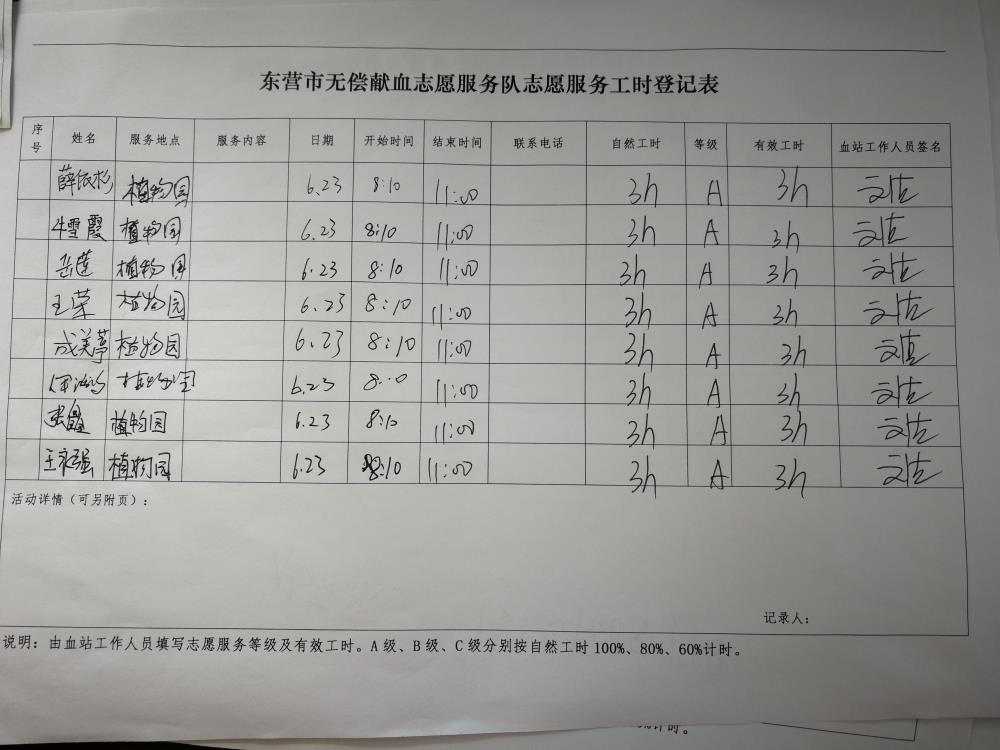 东营市无偿献血志愿服务队志愿服务工时登记表
序号 姓名 服务地点 服务内容 日期 开始时间 结束时间 联系电话 自然工时 等级 有效工时 血站工作人员签名
薛依杉 植物园 6.23 8:10 11:00 3h A 3h
牛雪霞 植物园 6.23 8:10 11:00 3h A 3h
岳莲 植物园 6.23 8:10 11:00 3h A 3h
王荣 植物园 6.23 8:10 11:00 3h A 3h
成美葶 植物园 6.23 8:10 11:00 3h A 3h
6.23 11:00 3h A 3h
植物园 6.23 8:10 11:00 3h A 3h
王永强 植物园 6.23 8:10 11:00 3h A 3h
活动详情（可另附页）：
记录人：
说明：由血站工作人员填写志愿服务等级及有效工时。A级、B级、C级分别按自然工时100%、80%、60%计时。
%计时。